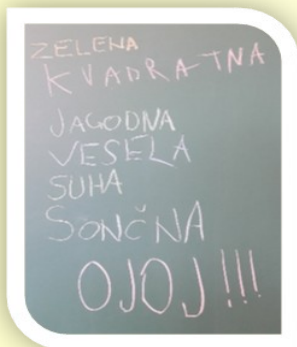 ZELENA
KVADRATNA
JAGODNA
VESELA
SUHA
SONČNA
OJOJ!!!